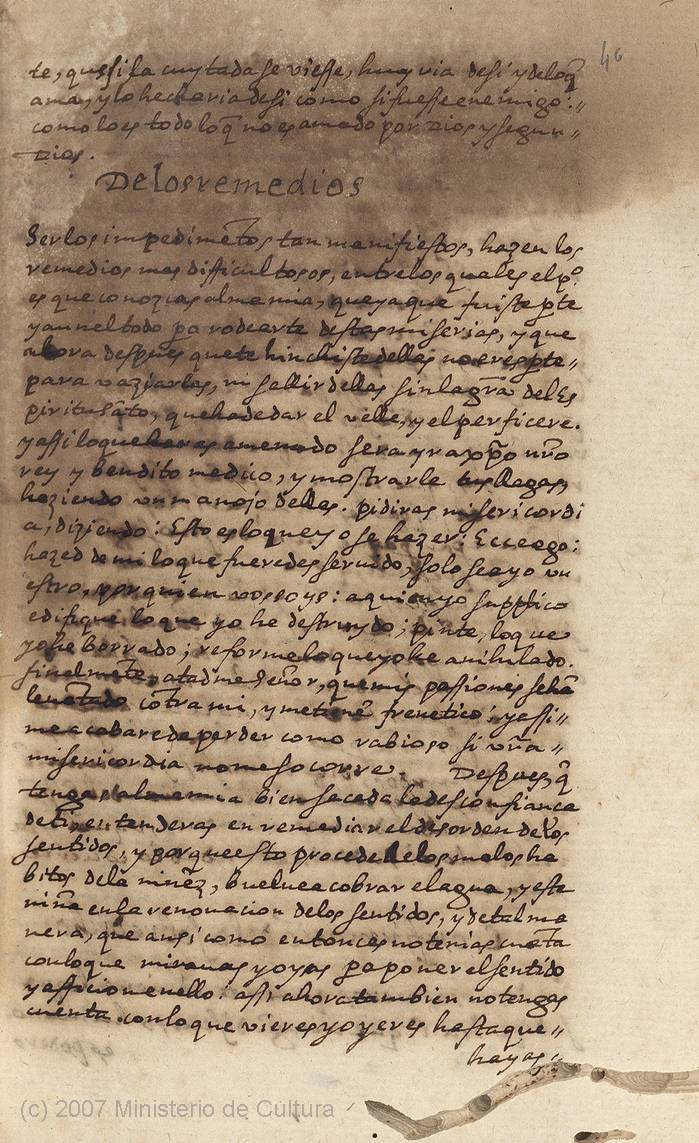 46
te, que si la cuytada se viesse, huyria de si y de loq̃
ama, y lo hecharia de si como si fuesse enemigo:
como lo es todo loq̃ no es amado por Dios y segun
Dios.
De los remedios
Ser los impedimẽtos tan manifiestos, hazen los
remedios mas difficultosos, entre los quales el p.º
es que conozcas alma mia, que ya que fuiste pte
y aun el todo pa rodearte destas miserias, y que
ahora despues que te hinchiste dellas no eres pte
para vaziarlas, ni sallir dellas sin la grã del Es
piritu sãto, que ha de dar el velle, y el perficere.
y assi lo que haras a menudo sera yr a xpõ nr̃o
rey y bendito medico, y mostrarle tus llagas,
haziendo un manojo dellas. pidiras misericordi
a, diziendo: Esto es lo que yo se hazer: Ecce ego:
hazed de mi lo que fueredes servido, solo sea yo vu
estro, por quien vos soys: a quien yo supplico
edifique lo que yo he destruydo; pinte, lo que
yo he borrado; reforme lo que yo he anihilado.
finalmẽte, atadme Señor, que mis passiones se hã
levãtado cõtra mi, y me tiene frenetico: y assi
me acabare de perder como rabioso si vr̃a
misericordia no me socorre. Despues q̃
tengas alma mia bien seca da la desconfiança
de ti, entenderas en remediar el disorden de los
sentidos, y porque esto procede de los malos ha
bitos de la niñez, buelve a cobrar el agua, y este
niña en la renovacion de los sentidos, y de tal ma
nera, que ansi como entonces no tenias cuẽta
con lo que miravas y oyas pa poner el sentido
y afficion en ello: assi ahora tambien no tengas
cuenta con lo que vieres y oyeres hasta que
hayas
(c) 2007 Ministerio de Cultura